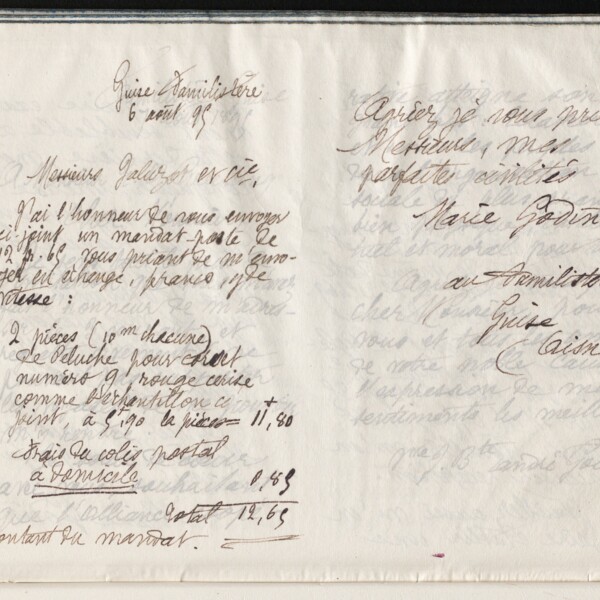 Guise Familistère
6 août 95
Messieurs Galuzot et Cie,
J'ai l'honneur de vous envoyer
ci-joint un mandat-poste de
12 fr. 65 vous priant de m'envo-
yer en échange, franco, gde
vitesse :
2 pièces (10 m chacune)
de peluche pour
numéro 9, rouge cerise
comme l'échantillon ci-
joint, à 5f,90 la pièce = 11,80
Frais du colis postal
à domicile 0,85
Total 12,65
montant du mandat.
Agréez, je vous prie
Messieurs, mes
parfaites civilités
Marie Godin
au Familistère
Guise
(Aisne